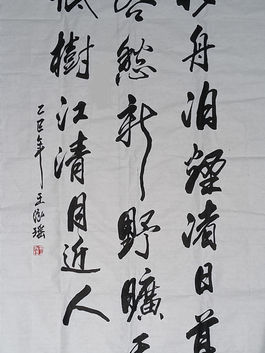 移舟泊煙渚日暮
客愁新野曠天
低樹江清月近人
乙巳年王